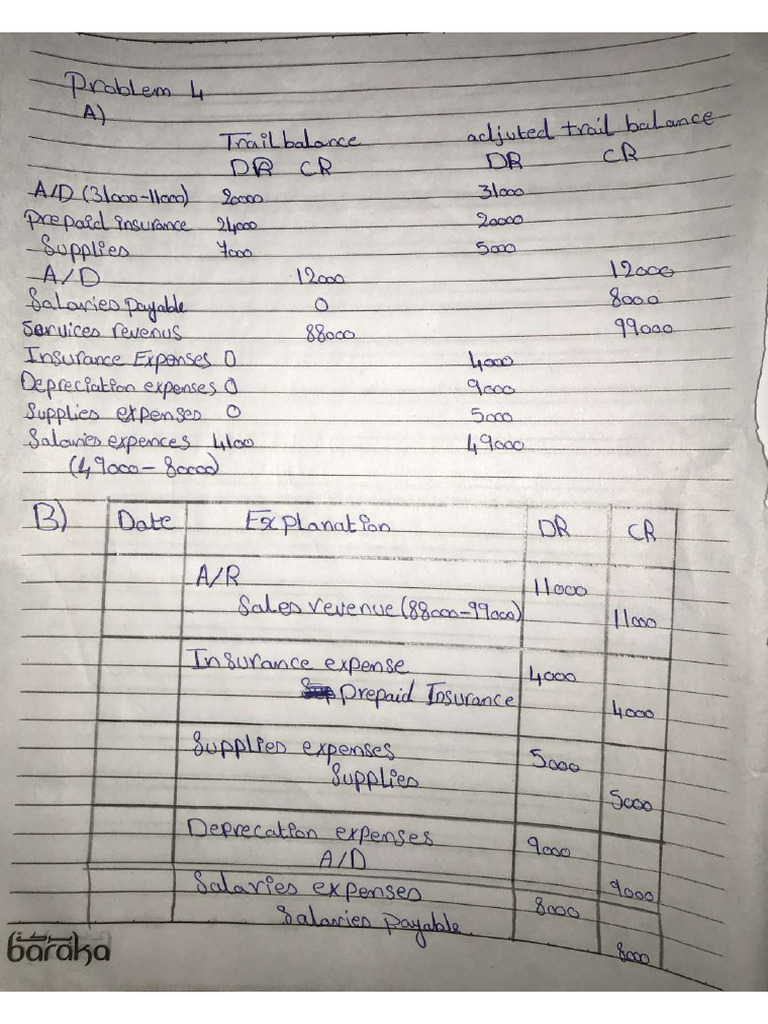 Problem 4
A)
Trail balance adjuted trail balance
DR CR DR CR
A/D (31000-11000) 20000 31000
Prepaid insurance 24000 20000
Supplies 7000 5000
A/D 12000 12000
Salaries payable 0 8000
Services revenus 88000 99000
Insurance Expenses 0 4000
Depreciation expenses 0 9000
Supplies expenses 0 5000
Salaries expences 4100 49000
(49000-80000)
B) Date Explanation DR CR
A/R 11000
Sales revenue (88000-99000) 11000
Insurance expense 4000
Prepaid Insurance 4000
Supplies expenses 5000
Supplies 5000
Deprecation expenses 9000
A/D 9000
Salaries expenses 8000
Salaries payable 8000
baraka